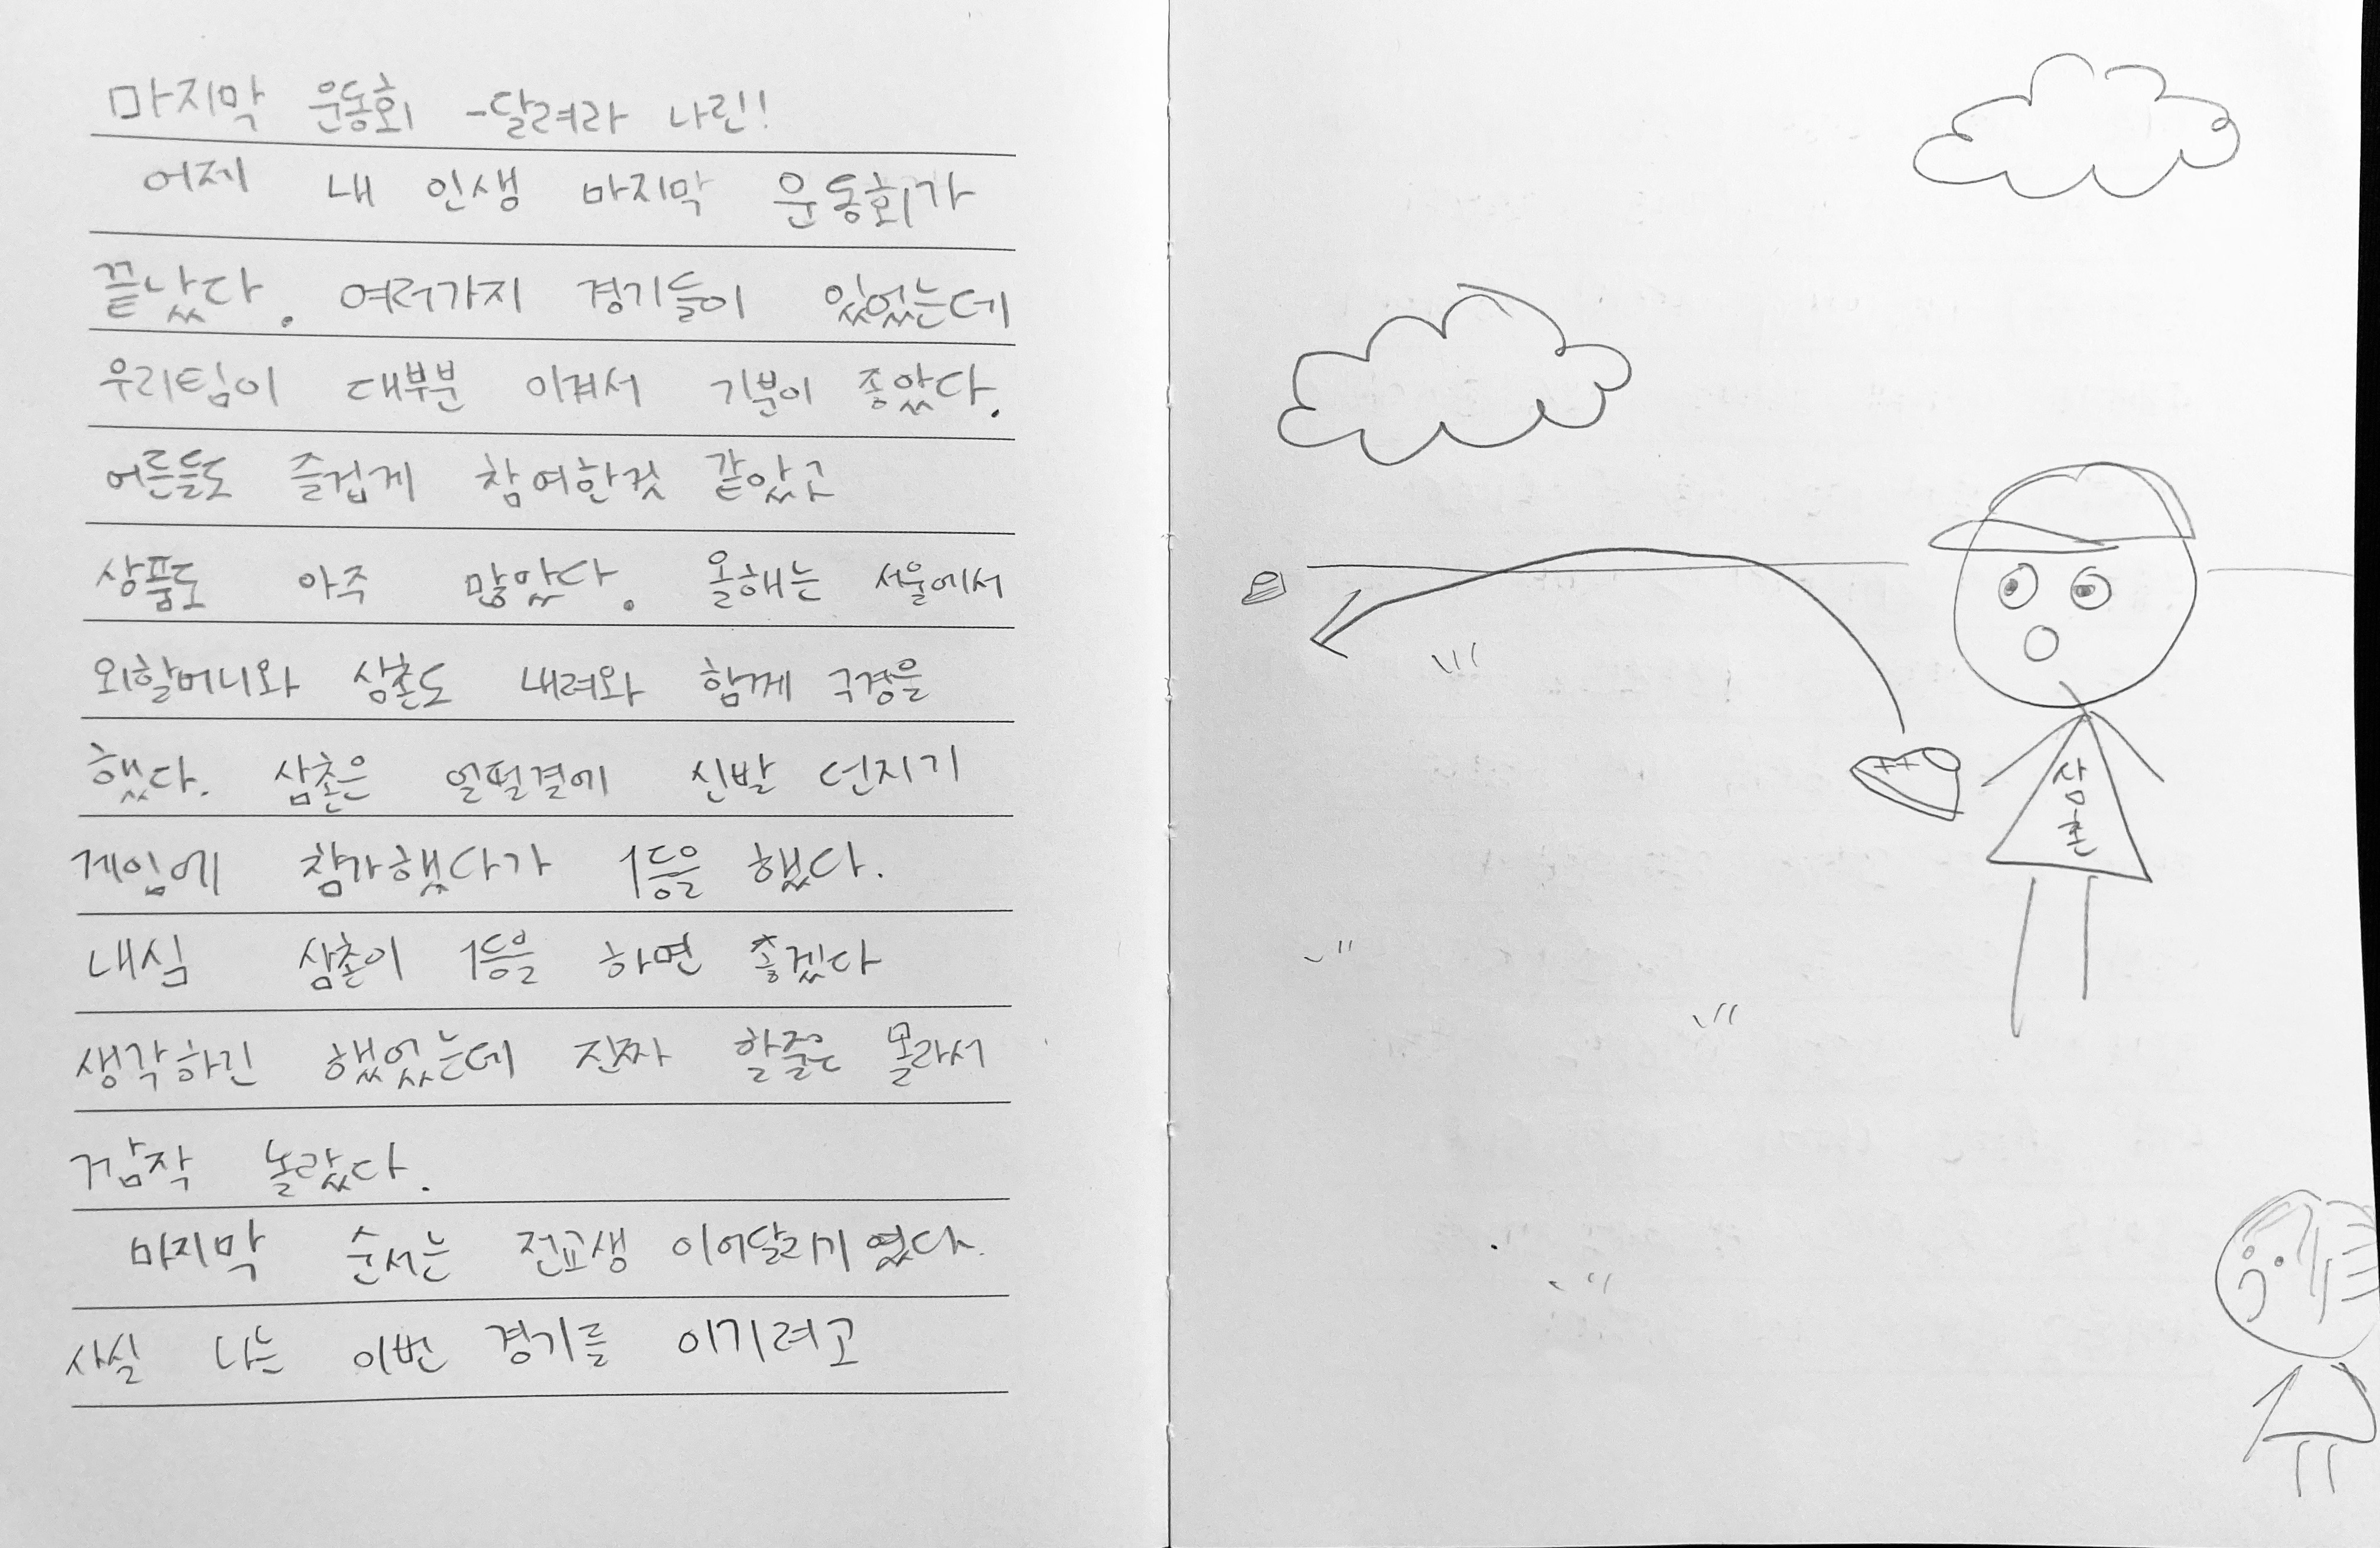 마지막 운동회 -달려라 나린!
어제 내 인생 마지막 운동회가
끝났다. 여러가지 경기들이 있었는데
우리팀이 대부분 이겨서 기분이 좋았다.
어른들도 즐겁게 참여한것 같았고
상품도 아주 많았다. 올해는 서울에서
외할머니와 삼촌도 내려와 함께 구경을
했다. 삼촌은 얼떨결에 신발 던지기
게임에 참가했다가 1등을 했다.
내심 삼촌이 1등을 하면 좋겠다
생각하긴 했었는데 진짜 할줄은 몰라서
깜작 놀랐다.
마지막 순서는 전교생 이어달리기 였다.
사실 나는 이번 경기를 이기려고
삼촌